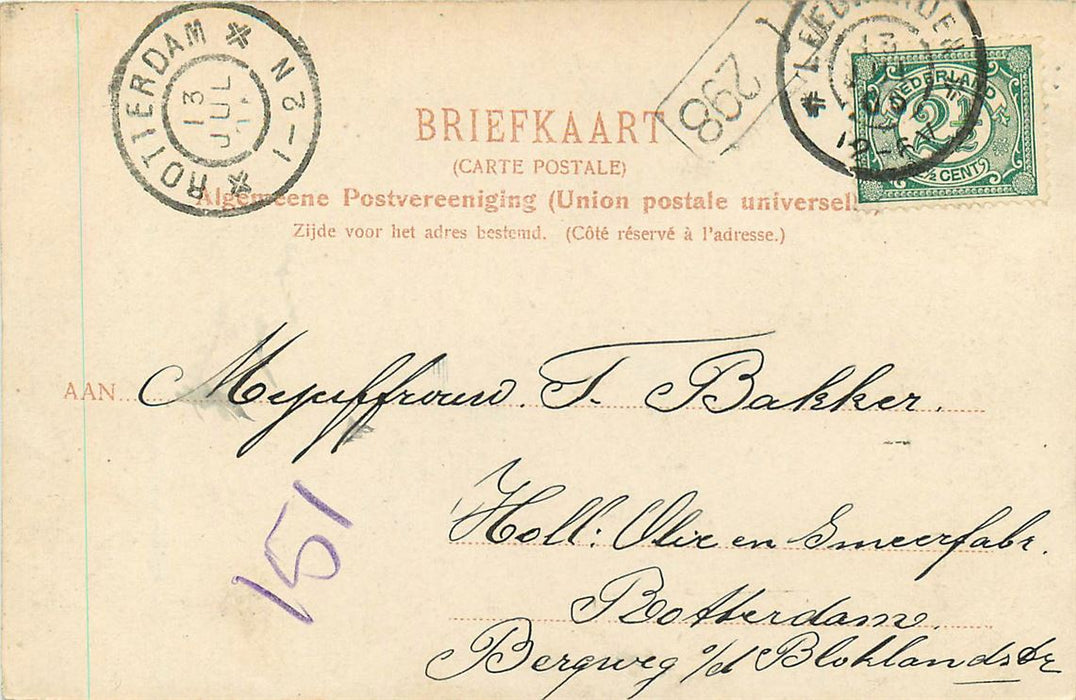 ROTTERDAM * N 2-1 *
13
JUL
298
* LEEUWARDEN
09
NEDERLAND
2½
CENT
BRIEFKAART
(CARTE POSTALE)
Algemeene Postvereeniging (Union postale universelle)
Zijde voor het adres bestemd. (Côté réservé à l'adresse.)
AAN Mejuffrouw. T. Bakker.
Holl: Olie en Smeerfabr.
151
Rotterdam.
Bergweg o/d Bloklandstr